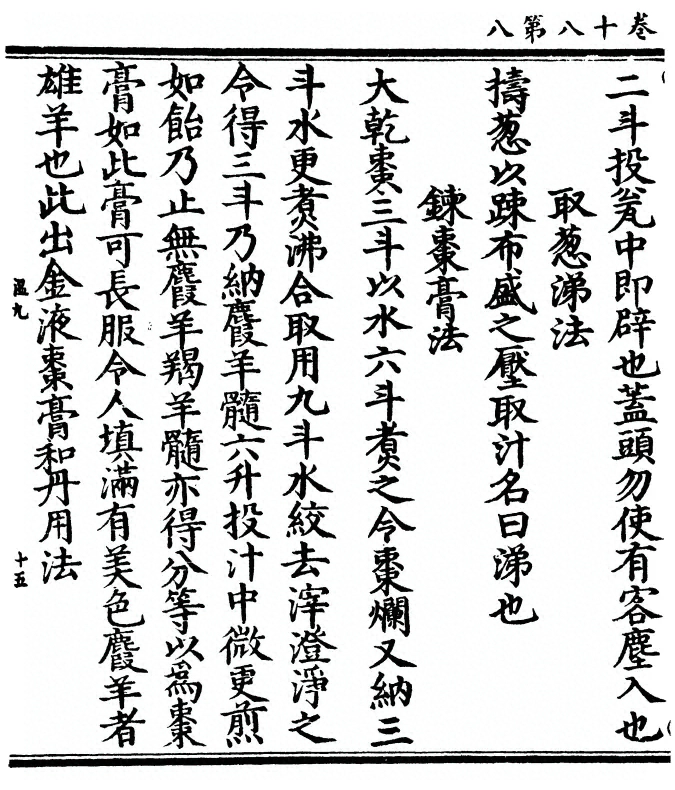 卷十八第八
二斗投瓮中即辟也蓋頭勿使有客塵入也
取葱涕法
擣葱以踈布盛之壓取汁名曰涕也
鍊棗膏法
大乾棗三斗以水六斗煮之令棗爛又納三
斗水更煮沸合取用九斗水絞去滓澄淨之
令得三斗乃納麢羊髓六升投汁中微更煎
如飴乃止無麢羊羯羊髓亦得分等以爲棗
膏如此膏可長服令人填滿有美色麢羊者
雄羊也此出金液棗膏和丹用法
溫九
十五